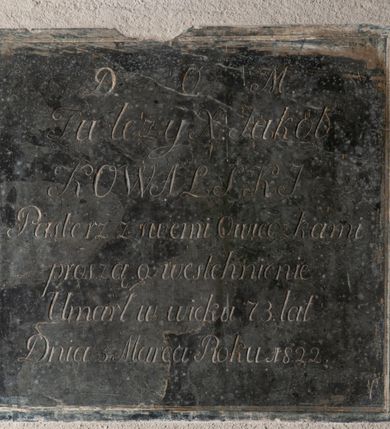 D O M
Tu leży X. Jakób
KOWALSKI
Pasterz z swemi Owieczkami
proszą o westchnienie
Umarł w wieku 73. lat
Dnia 5 Marca Roku 1822.